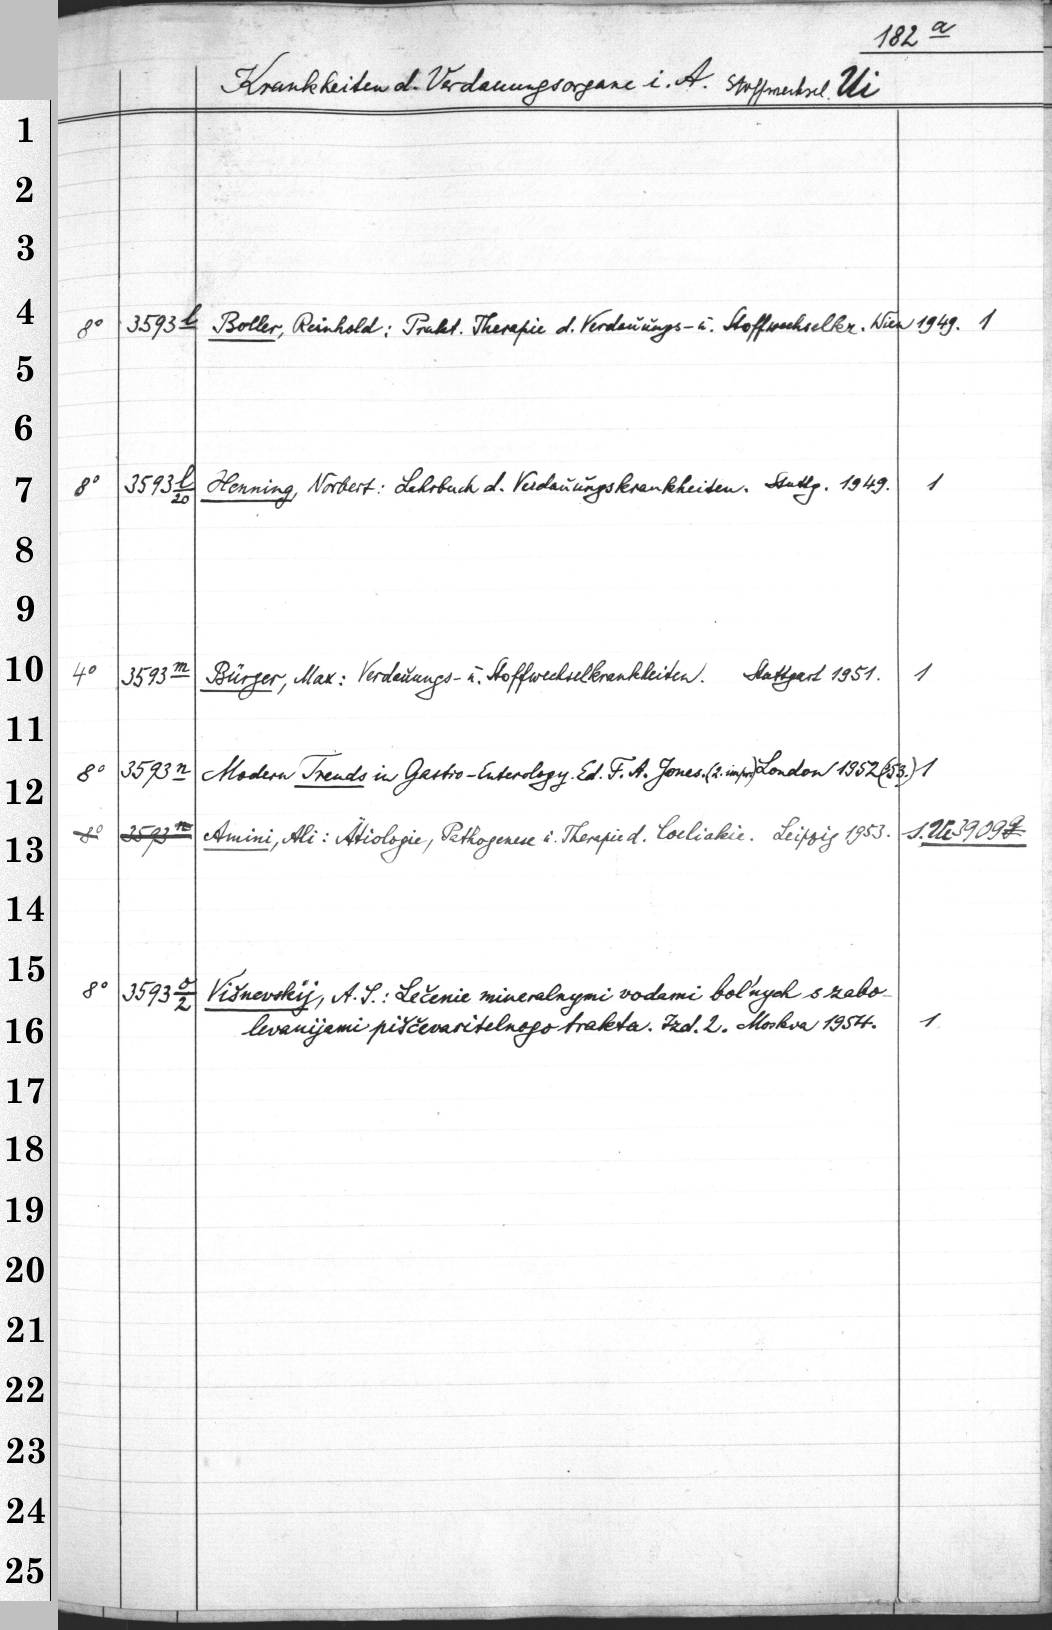 182 a
Krankheiten d. Verdauungsorgane i. A. Stoffwechsel. Ui
1
2
3
4 8° 3593 l Boller, Reinhold: Prakt. Therapie d. Verdauungs- u. Stoffwechselkr. Wien 1949. 1
5
6
7 8° 3593 l/20 Henning, Norbert: Lehrbuch d. Verdauungskrankheiten. Stuttg. 1949. 1
8
9
10 4° 3593 m Bürger, Max: Verdauungs- u. Stoffwechselkrankheiten. Stuttgart 1951. 1
11
12 8° 3593 n Modern Trends in Gastro-Enterology. Ed. F. A. Jones. (2. impr.) London 1952 (53.) 1
13 8° 3593 Amini, Ali: Ätiologie, Pathogenese u. Therapie d. Coeliakie. Leipzig 1953. s. 3909
14
15 8° 3593 o/2 Višnevskij, A. S.: Lečenie mineralnymi vodami bol'nych s zabo-
16 levanijami piščevaritelnogo trakta. Izd. 2. Moskva 1954. 1
17
18
19
20
21
22
23
24
25